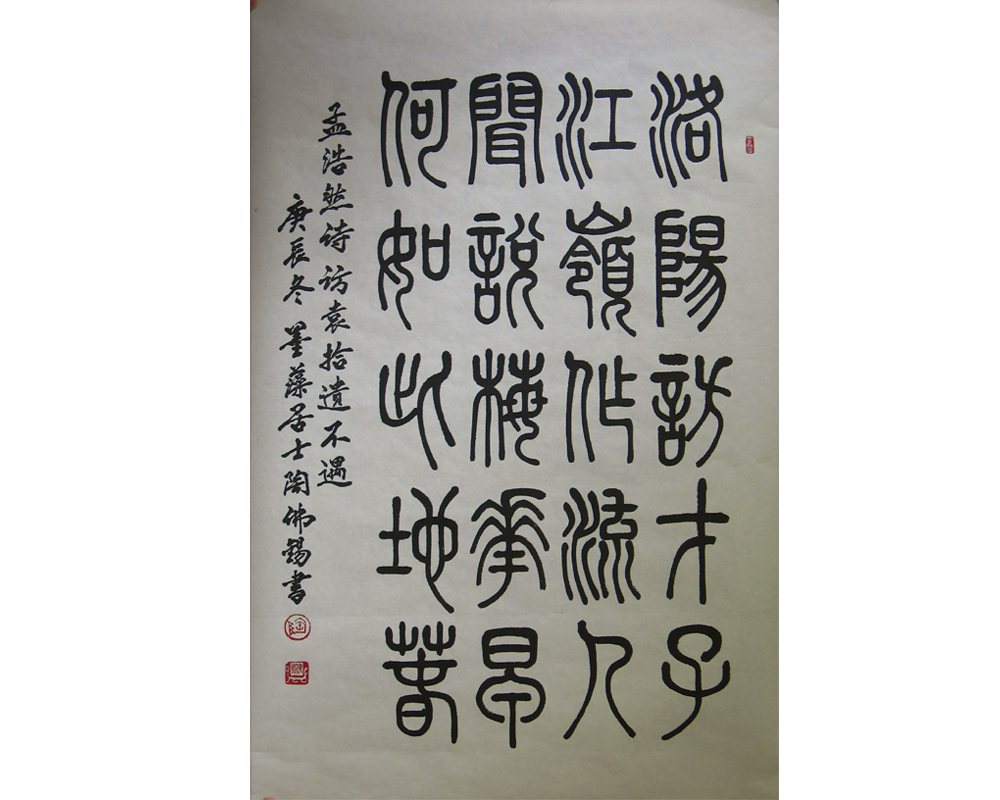 洛陽訪才子
江嶺作流人
聞說梅花早
何如此地春
孟浩然诗访袁拾遺不遇
庚辰冬墨藻居士陶佛錫书